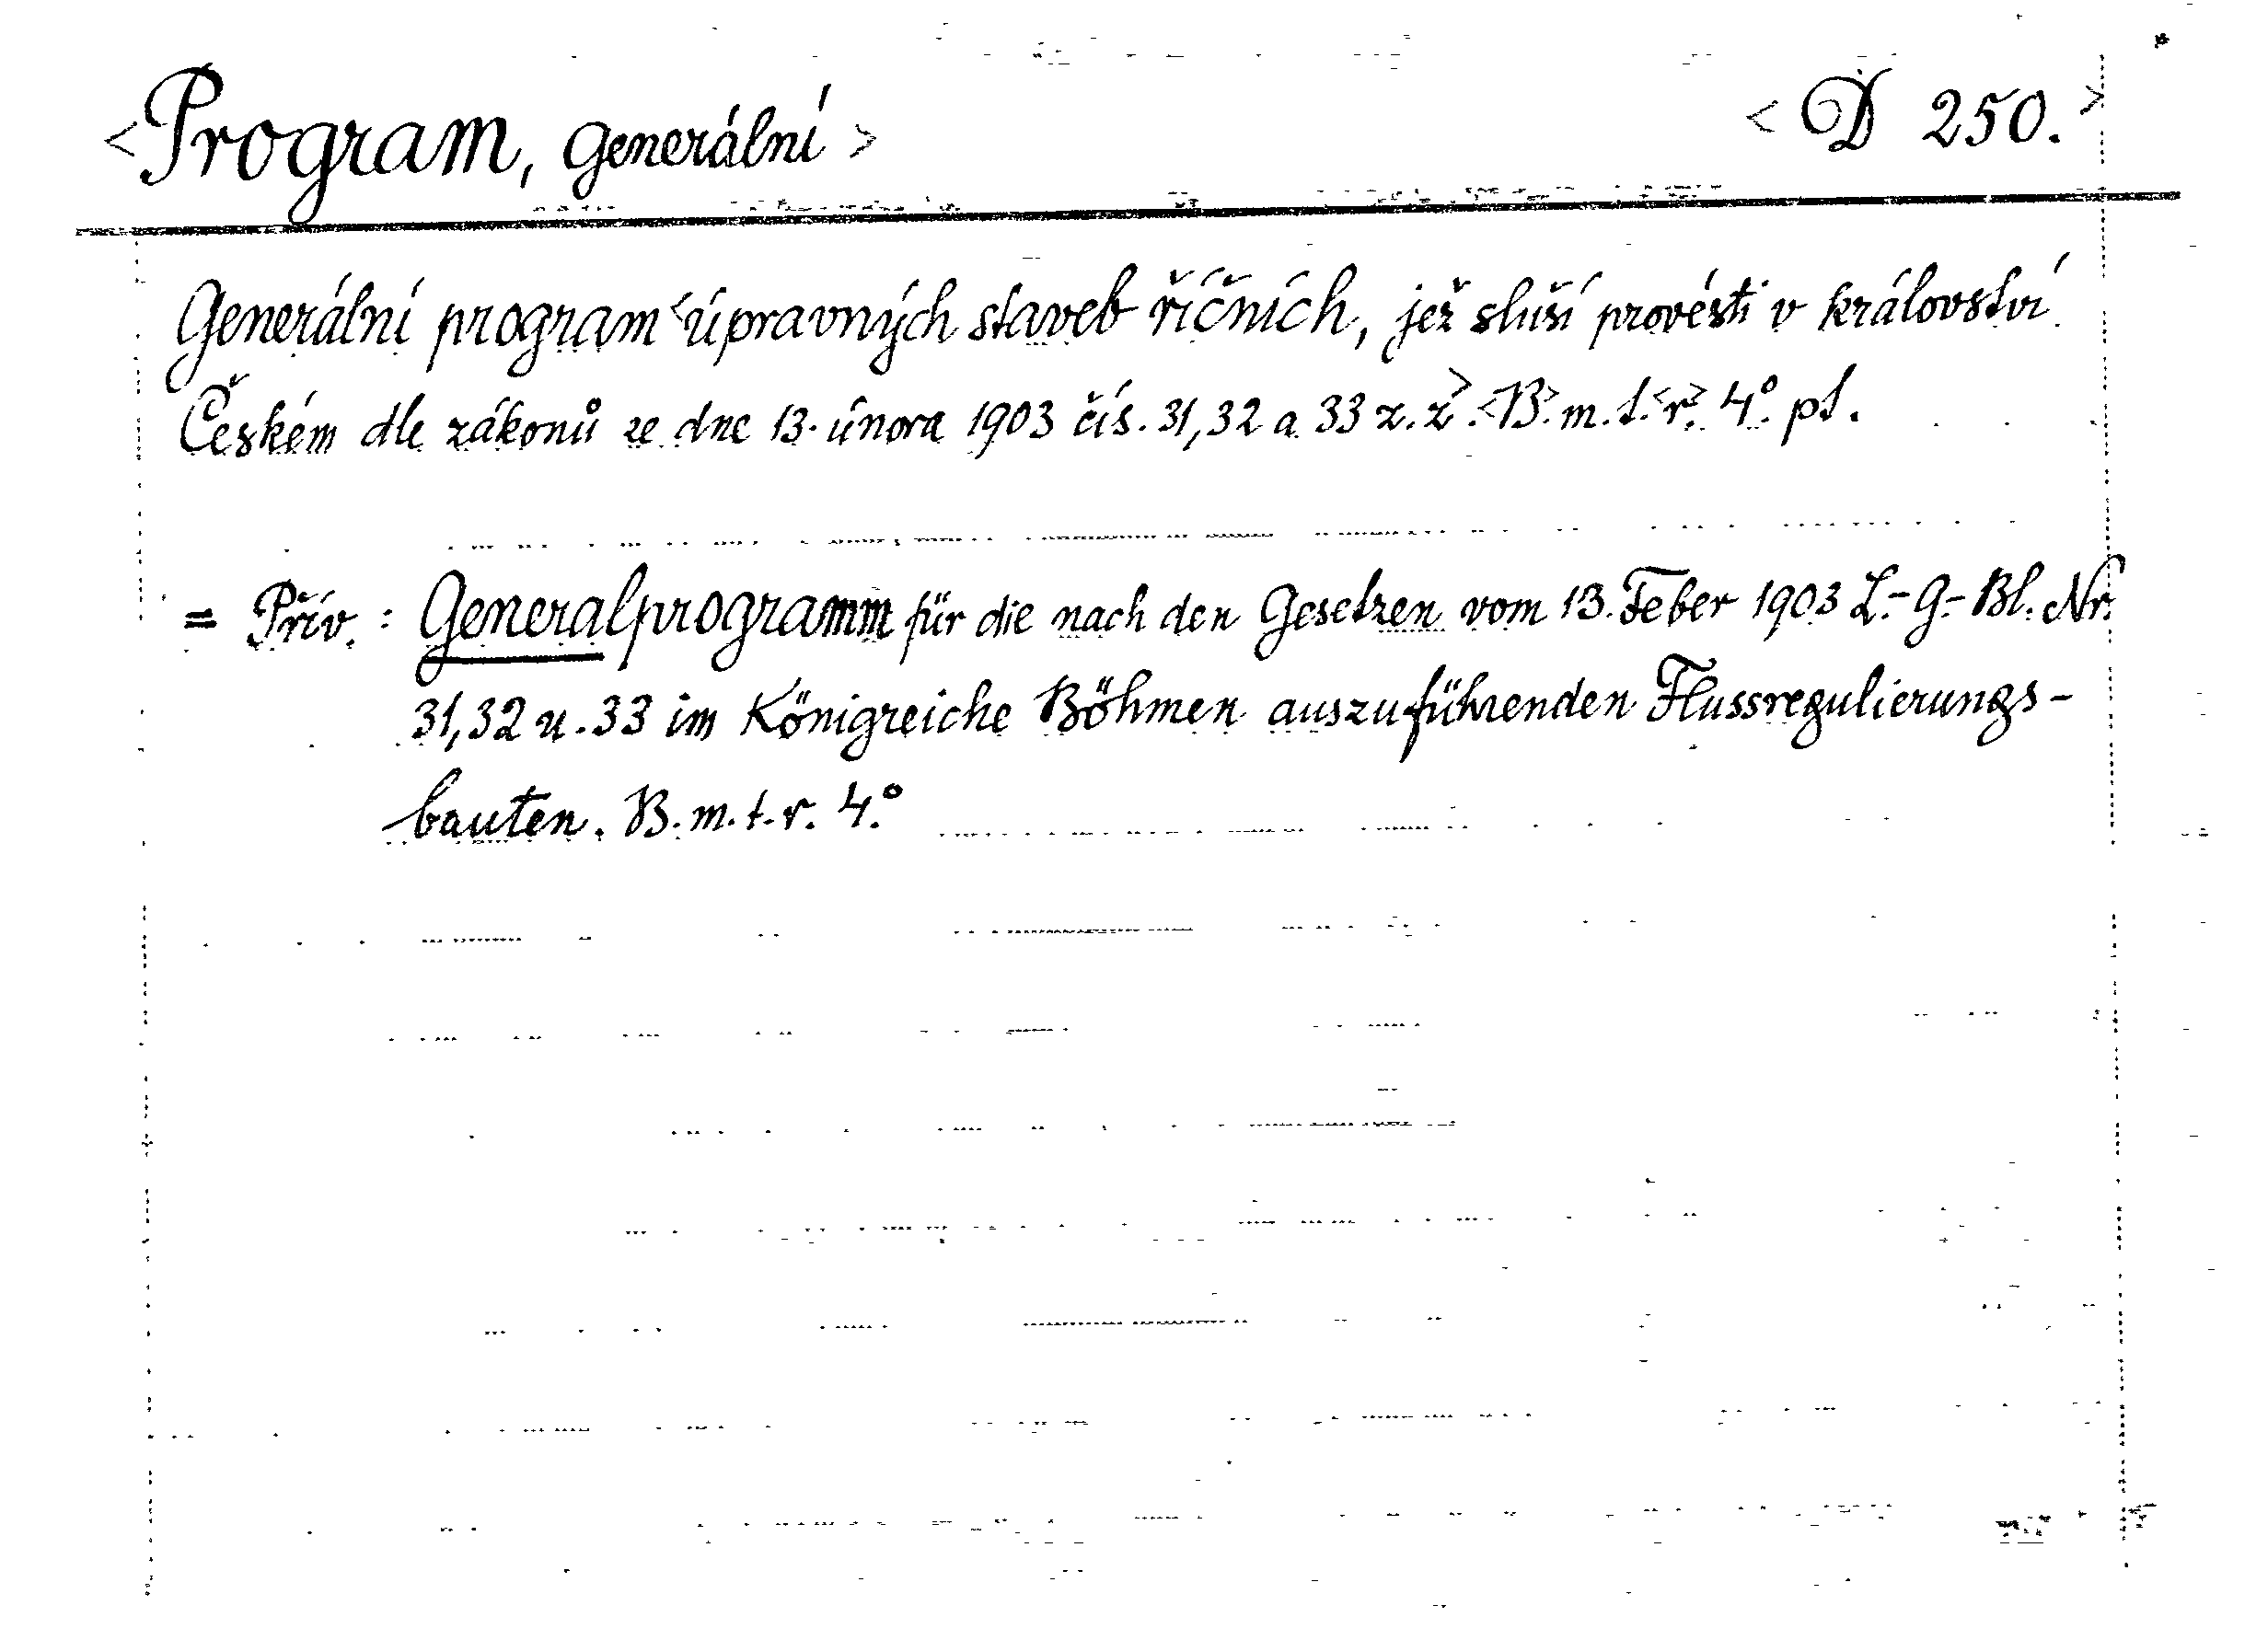 <Program, generální> <D 250.>
Generální program <úpravných staveb říčních, jež sluší provésti v království
Českém dle zákonů ze dne 13. února 1903 čís. 31, 32 a 33 z. z>. <B>. m. t. <r>. 4º. pt.
= Přív.: Generalprogramm für die nach den Gesetzen vom 13. Feber 1903 L.-G.-Bl. Nr.
31, 32 u. 33 im Königreiche Böhmen auszuführenden Flussregulierungs-
bauten. B. m. t. r. 4.º